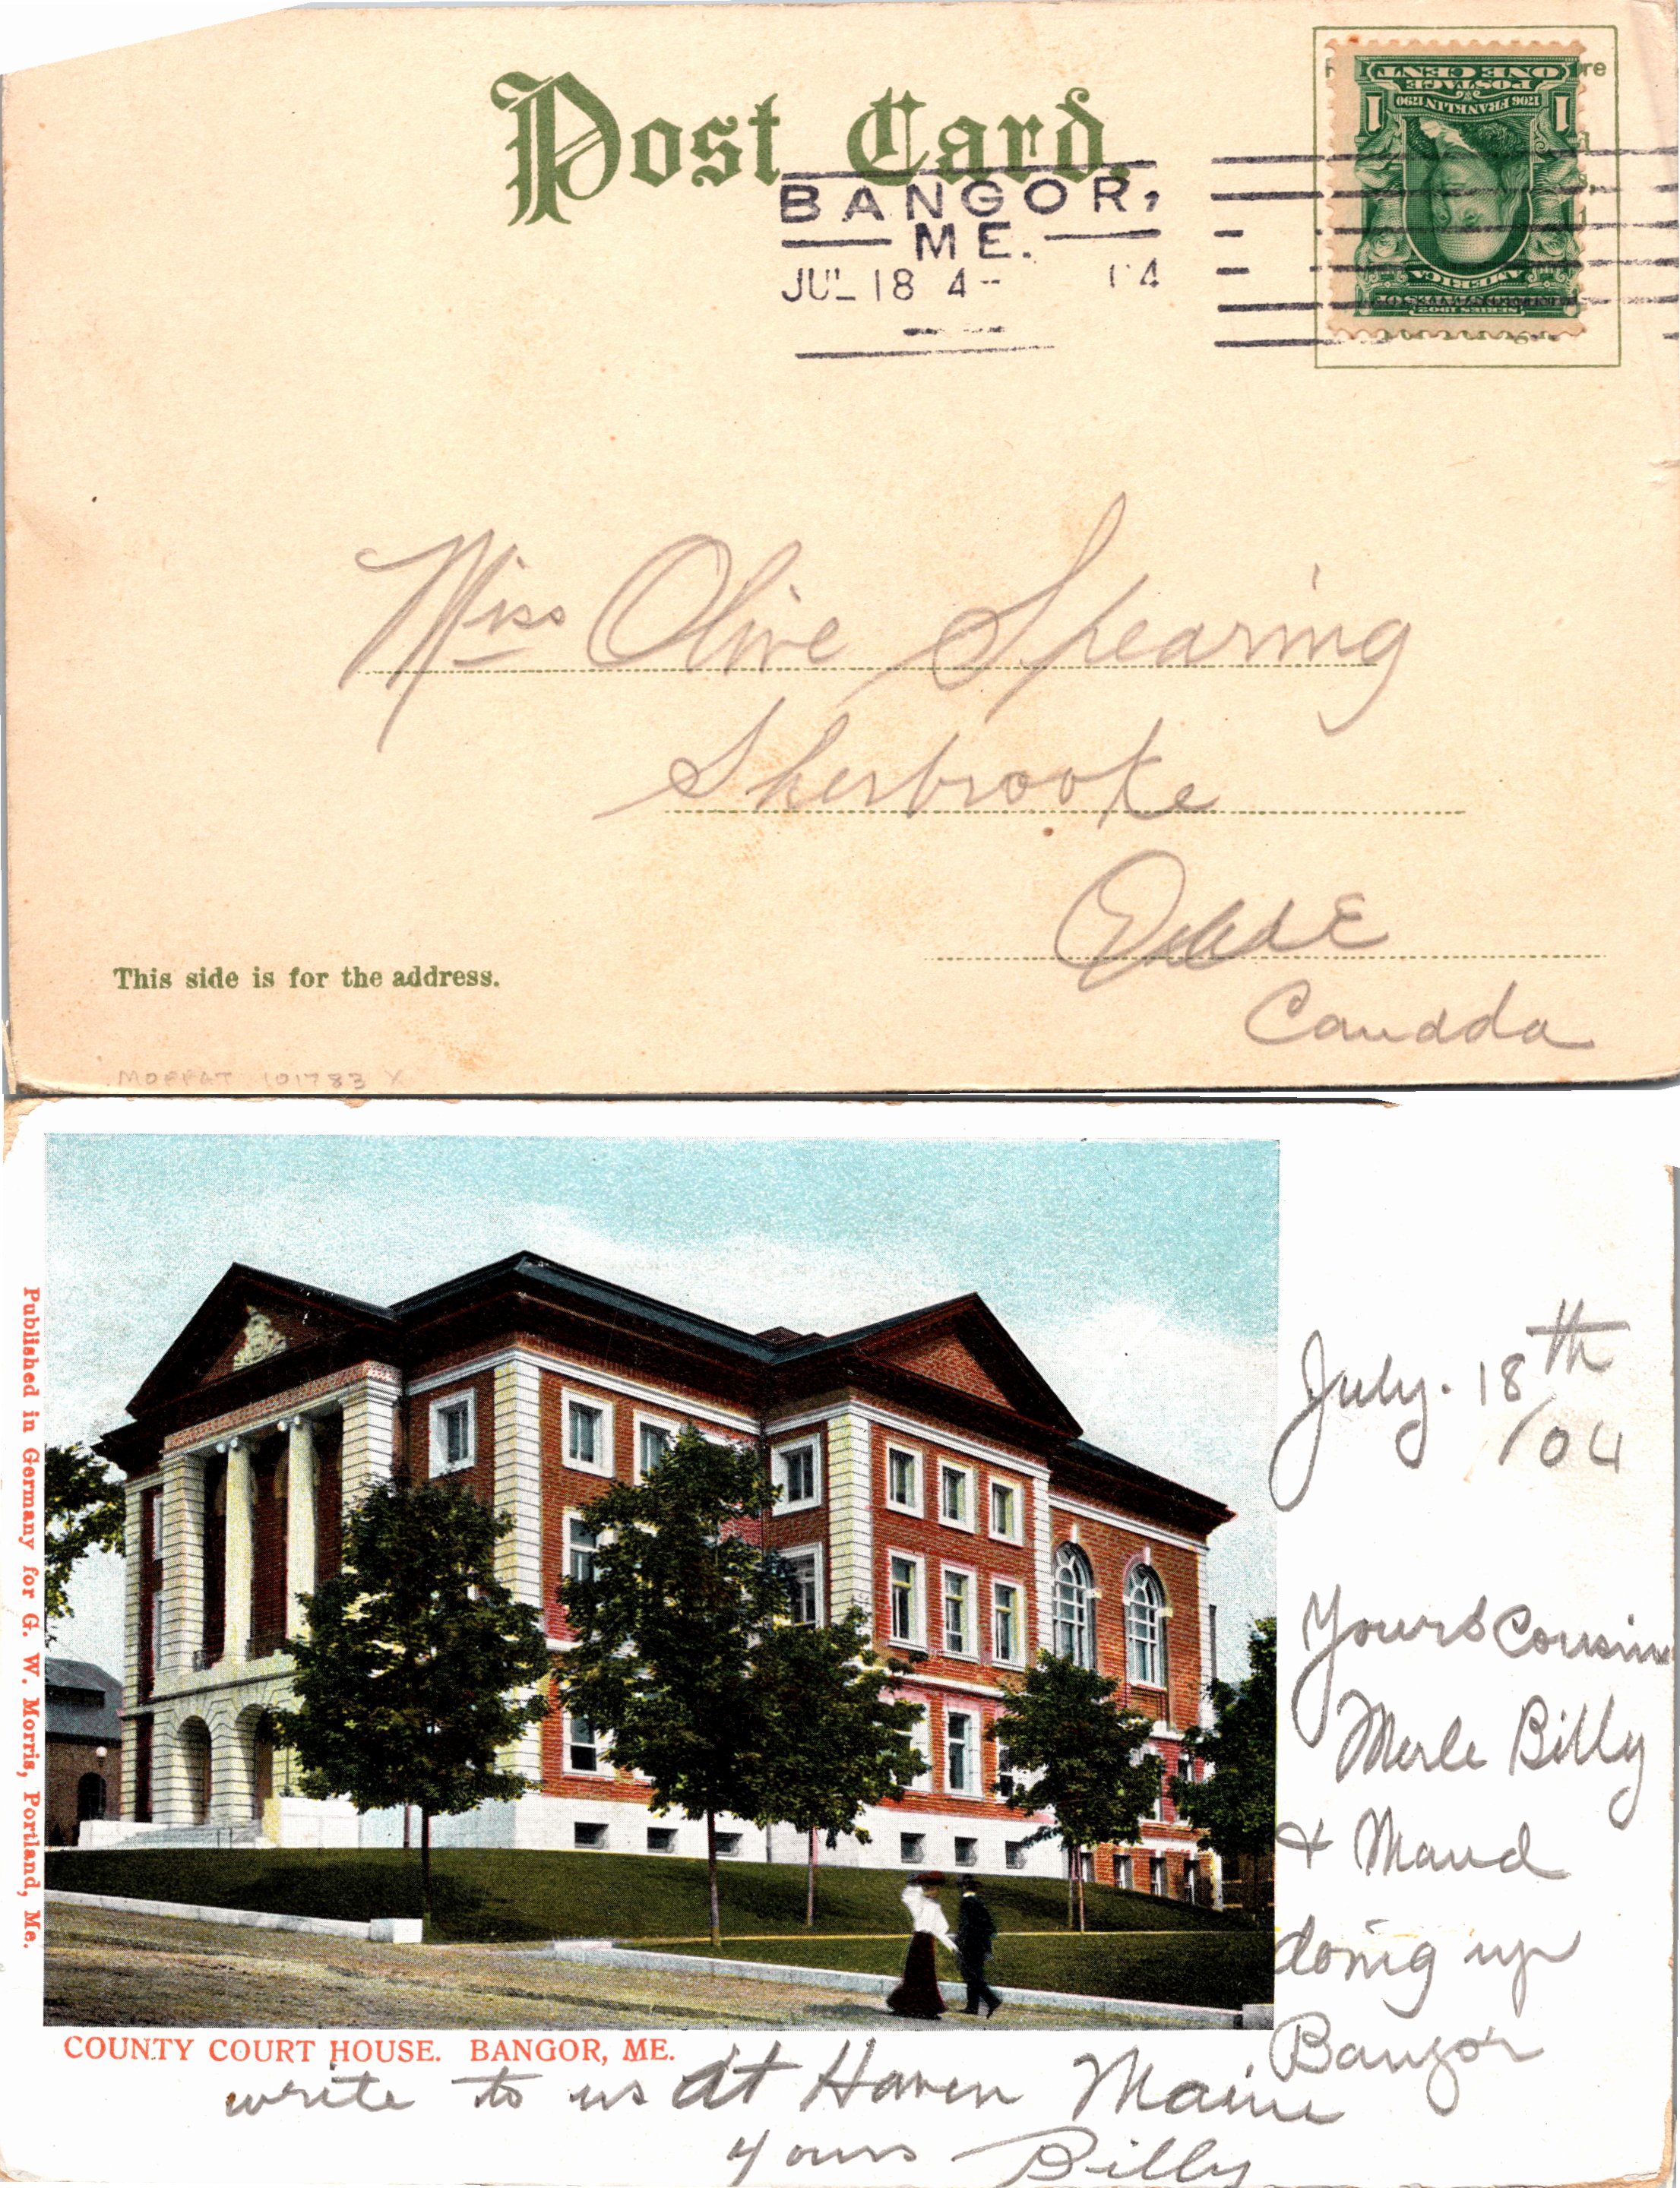 Post Card.
BANGOR,
ME.
JUL 18 4- 04
re
ONE CENT
POSTAGE
1706 FRANKLIN 1790
1 1
AMERICA
SERIES 1902
Miss Olive Spearing
Sherbrooke
Canada
This side is for the address.
MOFFAT 101783 X
Published in Germany for G. W. Morris, Portland, Me.
July. 18th
/04
Yours Cousin
Merle Billy
& Maud
doing up
Bangor
COUNTY COURT HOUSE. BANGOR, ME.
write to us At Haven Maine
yours Billy